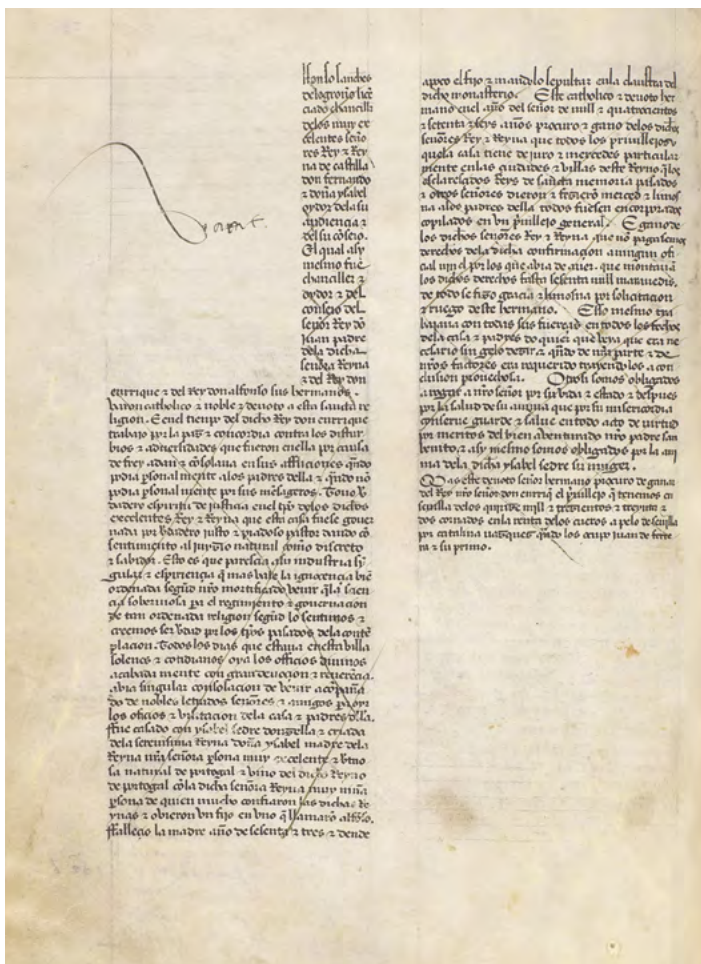 lfonso sanches
delogroño licē
ciado chancill̃
delos muy ex
celentes seño
res Rey ⁊ Rey
na de castilla
don fernando
⁊ doña ysabel
oydor dela su
audiencia ⁊
del su cōsejo.
El qual asy
mesmo fue
chanciller ⁊
oydor ⁊ del
consejo del
señor Rey dō
juan padre
dela dicha
señora Reyna
⁊ del Rey don
enrrique ⁊ del Rey don alfonso sus hermanos.
varon catholico ⁊ noble ⁊ deuoto a esta sancta re
ligion. E enel tienpo del dicho Rey don enrrique
trabajo por la paz ⁊ concordia contra los distur
bios ⁊ aduersidades que fueron enella por causa
de frey adan ⁊ cōsolaua en sus afflicciones q̄ndo
podia p̱sonal mente alos padres della ⁊ q̄ndo nō
podia p̱sonal mente por sus mēsageros. Touo v̄
dadero espiritu de justicia enel tp̄o delos dichos
excelentes Rey ⁊ Reyna que esta casa fuese gouer
nada por v̄dadero justo ⁊ piadoso pastor dando cō
sentimiento al juyzio natural como discreto
⁊ sabidor. Esto es que paresçia asu industria sȳ
gular ⁊ espiriençia q̄ mas vale la ignorencia biē
ordenada segūd nr̄o mortificado beuir q̄la sciē
cia soberuiosa p̱a el regimiento ⁊ gouernacion
de tan ordenada religion segūd lo sentimos ⁊
creemos ser v̄dad por los tp̄os pasados dela contē
placion. Todos los dias que estaua enesta villa
solenes ⁊ cotidianos oya los officios diuinos
acabada mente con gran deuocion ⁊ reuerēcia.
avia singular consolacion de venir acōpaña
do de nobles letrados señores ⁊ amigos p̱a oyr
los oficios ⁊ visitacion dela casa ⁊ padres della.
ffue casado con ysabel sedre donzella ⁊ criada
dela serenisima Reyna doña ysabel madre dela
Reyna nr̄a señora p̱sona muy excelente ⁊ v̄tuo
sa natural de portogal ⁊ vino del dicho Reyno
de portogal cōla dicha señora Reyna muy niña
p̱sona de quien mucho confiaron las dichas Re
ynas ⁊ ovieron vn fijo en vno q̄ llamarō alfōso.
ffallecio la madre año de sesenta ⁊ tres ⁊ dende
apoco el fijo ⁊ mandolo sepultar enla claustra del
dicho monasterio. Este catholico ⁊ deuoto her
mano enel año del señor de mill ⁊ quatrocientos
⁊ setenta ⁊ seys años procuro ⁊ gano delos dichos
señores Rey ⁊ Reyna que todos los preuillejos
quela casa tiene de juro ⁊ mercedes particular
mente enlas ciudades ⁊ villas deste Reyno q̄los
esclarescidos Reys de sancta memoria pasados
⁊ otros señores dieron ⁊ fizierō merced ⁊ limos
na alos padres della todos fuesen encorporados
copilados en vn preuillejo general. E gano de
los dichos señores Rey ⁊ Reyna que nō pagasemos
derechos dela dicha confirmacion aningun ofi
cial nin el por los que abia de auer. que montauā
los dichos derechos fasta sesenta mill marauedis.
de todo se fizo gracia ⁊ limosna por solicitacion
⁊ ruego deste hermano. Esso mesmo tra
bajaua con todas sus fuerças en todos los fechos
dela casa ⁊ padres do quier que veya que era ne
cesario sin gelo dezir. ⁊ q̄ndo de nr̄a parte ⁊ de
nr̄os factores era requerido trayendolos a con
clusion prouechosa. Otrosi somos obligados
a rogar a nr̄o señor por su vida ⁊ estado ⁊ despues
por la salud de su anima que por su misericordia
conserue guarde ⁊ salue en todo acto de virtud
por meritos del bien aventurado nr̄o padre san
benito. ⁊ asy mesmo somos obligados por la ani
ma dela dicha ysabel sedre su muger.
Mas este deuoto señor hermano procuro de ganar
del Rey nr̄o señor don enrriq̄ el preuillejo q̄ tenemos en
seuilla delos quinze mill ⁊ trezientos ⁊ treynta ⁊
dos cornados enla renta delos cueros a pelo de seuilla
por catalina vasques q̄ndo los ocupo juan de ferre
ra ⁊ su primo.